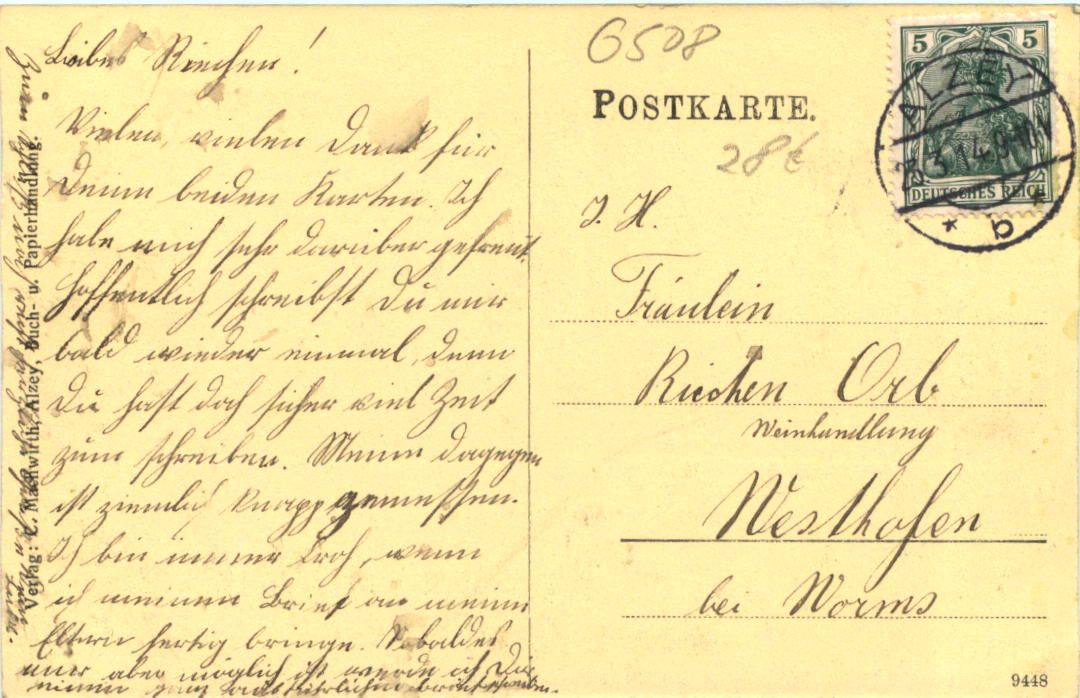 Liebes Riechen!
Vielen, vielen Dank für
Deine beiden Karten. Ich
habe mich sehr darüber gefreut.
Hoffentlich schreibst Du mir
bald wieder einmal, denn
Du hast doch sicher viel Zeit
zum schreiben. Meine dagegen
ist ziemlich knapp gemessen.
Ich bin immer froh, wenn
ich meinen Brief an meine
Eltern fertig bringe. Sobald es
mir aber möglich ist werde ich Dir
einen ganz ausführlichen Brief schreiben.
Verlag: C. Machwirth, Alzey, Buch- u. Papierhandlung.
6508
POSTKARTE.
28€
5 5
DEUTSCHES REICH
ALZEY
3.14.9-10V
* b *
I. H.
Fräulein
Riechen Orb
Weinhandlung
Westhofen
bei Worms
9448